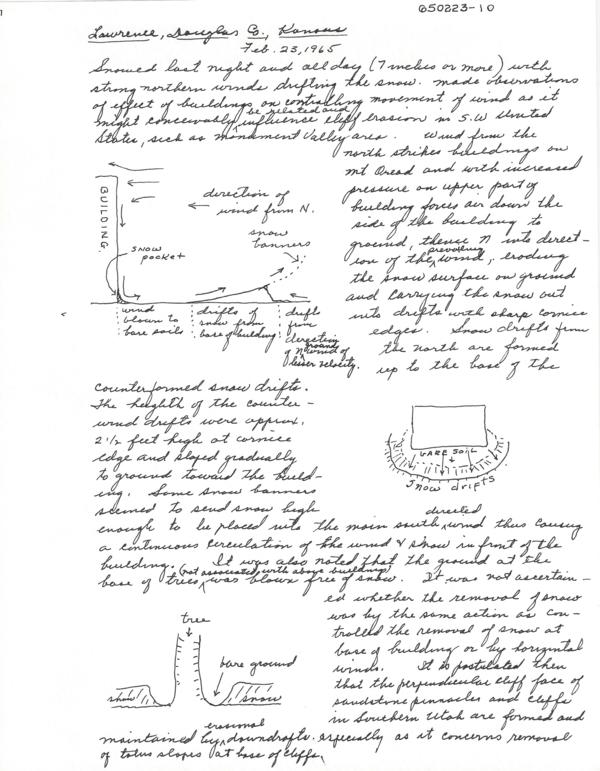 650223-10
Lawrence, Douglas Co., Kansas
Feb. 23, 1965
Snowed last night and all day (7 inches or more) with
strong northern winds drifting the snow. made observations
of effect of buildings on controlling movement of wind as it
might conceivably be related and influence cliff erosion in S.W United
States, such as monument Valley area. Wind from the
north strikes buildings on
mt Oread and with increased
pressure on upper part of
building forces air down the
side of the building to
ground, thence N into direct-
ion of the prevailing wind, eroding
the snow surface on ground
and carrying the snow out
into drifts with sharp cornice
edges. Snow drifts from
the north are formed
up to the base of the
BUILDING.
direction of
wind from N.
snow
banners
SNOW
pocket
wind
blown to
bare soils
drifts of
snow from
base of building
drifts
from
directing
of N ground wind of
lesser velocity.
counterformed snow drifts.
The heighth of the counter-
wind drifts were approx.
2 1/2 feet high at cornice
edge and sloped gradually
to ground toward the build-
ing. Some snow banners
seemed to send snow high
enough to be placed into the main south directed wind thus causing
a continuous circulation of the wind & snow in front of the
building. It was also noted that the ground at the
base of trees (not associated with above buildings) was blown free of snow. It was not ascertain-
BARE SOIL
Snow drifts
ed whether the removal of snow
was by the same action as con-
trolled the removal of snow at
base of building or by horizontal
winds. It is postulated then
that the perpendicular cliff face of
sandstone pinnacles and cliffs
in Southern Utah are formed and
tree
bare ground
snow
snow
maintained by erosional downdrafts. especially as it concerns removal
of talus slopes at base of cliffs.